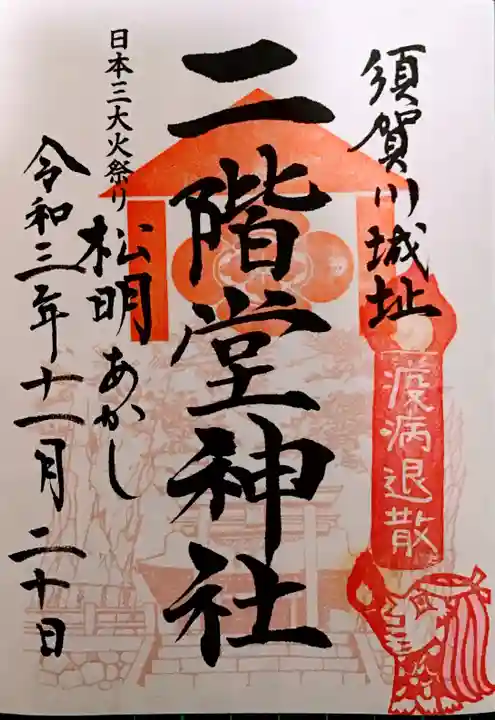 須賀川城址
疫病退散
二階堂神社
日本三大火祭り
松明あかし
令和三年十一月二十日